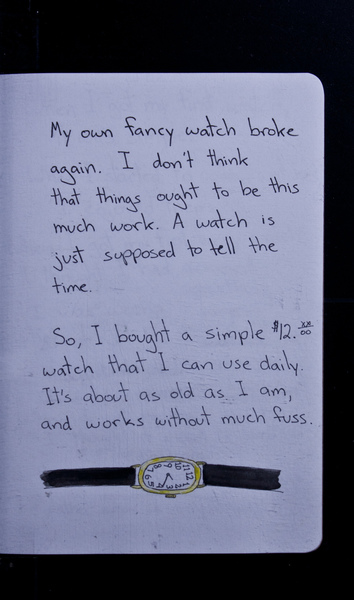 My own fancy watch broke
again. I don't think
that things ought to be this
much work. A watch is
just supposed to tell the
time.
So, I bought a simple $12.xx/00
watch that I can use daily.
It's about as old as I am,
and works without much fuss.